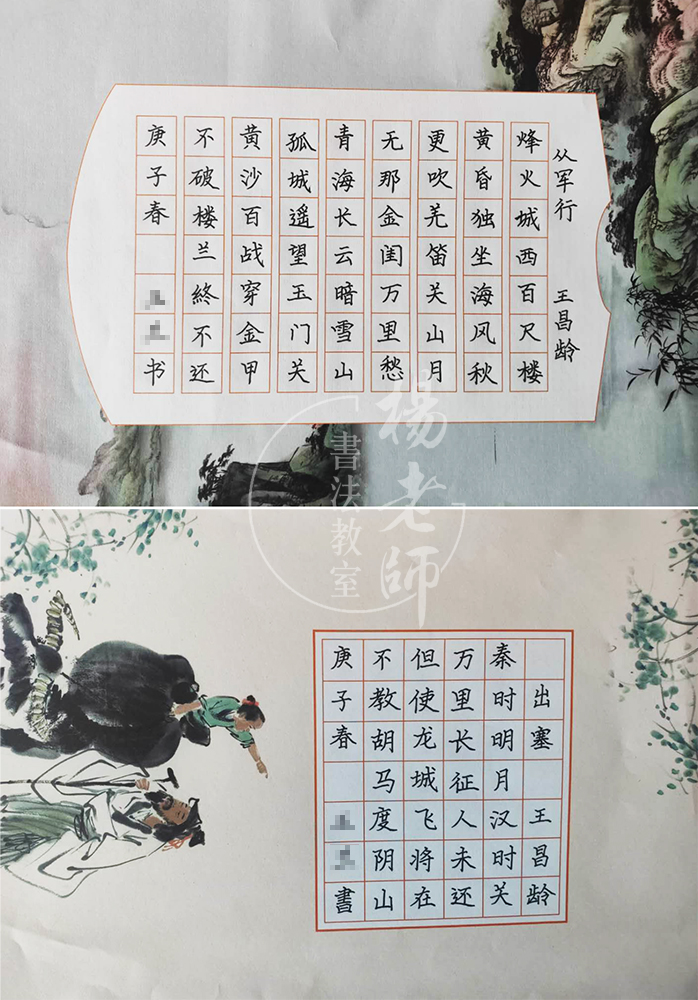 从军行 王昌龄
烽火城西百尺楼
黄昏独坐海风秋
更吹羌笛关山月
无那金闺万里愁
青海长云暗雪山
孤城遥望玉门关
黄沙百战穿金甲
不破楼兰終不还
庚子春 书
楊老師
書法教室
出塞 王昌龄
秦时明月汉时关
万里长征人未还
但使龙城飞将在
不教胡马度阴山
庚子春 書